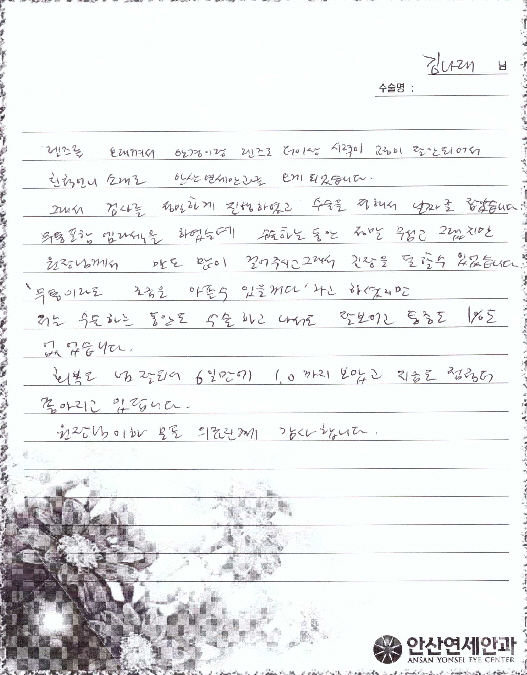 김나래 님
수술명 :
렌즈를 오래껴서 안경이랑 렌즈로 더이상 시력이 교정이 잘안되어서
친한언니 소개로 안산연세안과를 오게 되었습니다.
그래서 검사를 정밀하게 진행하였고 수술을 정해서 날짜를 잡았습니다.
무통포함 엠라섹을 하였는데 수술하는동안 정말 무섭고 그랬지만
원장님께서 말도 많이 걸어주시고그래서 긴장을 덜 할수 있었습니다.
'무통이라도 조금은 아플수 있을꺼다' 라고 하셨지만
저는 수술하는 동안도 수술하고 나서도 잘보이고 통증도 1%도
없었습니다.
회복도 넘 잘되어 6일만에 1.0까지 보았고 지금도 점점더
좋아지고 있답니다.
원장님이하 모든 의료진께 감사합니다.
안산연세안과
ANSAN YONSEI EYE CENTER